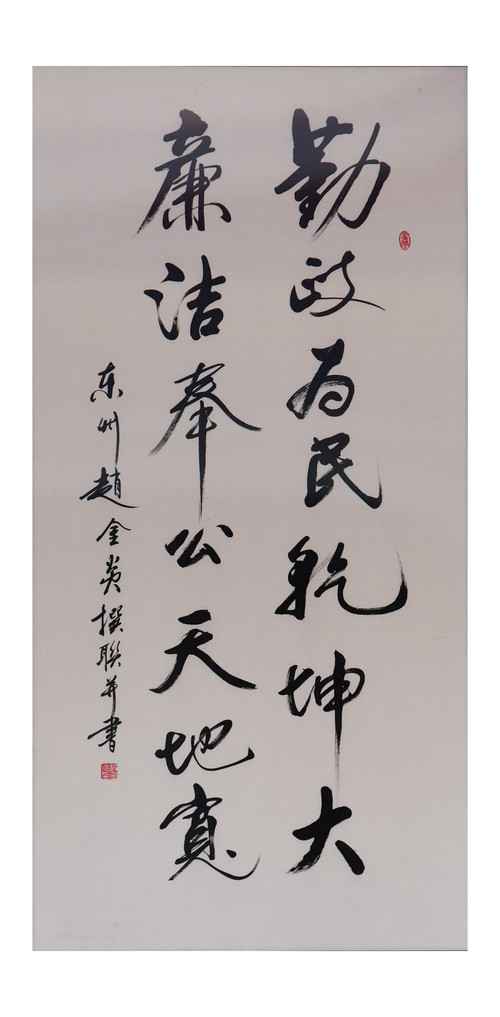 勤政为民乾坤大
廉洁奉公天地寬
東州趙金炎撰聯并書